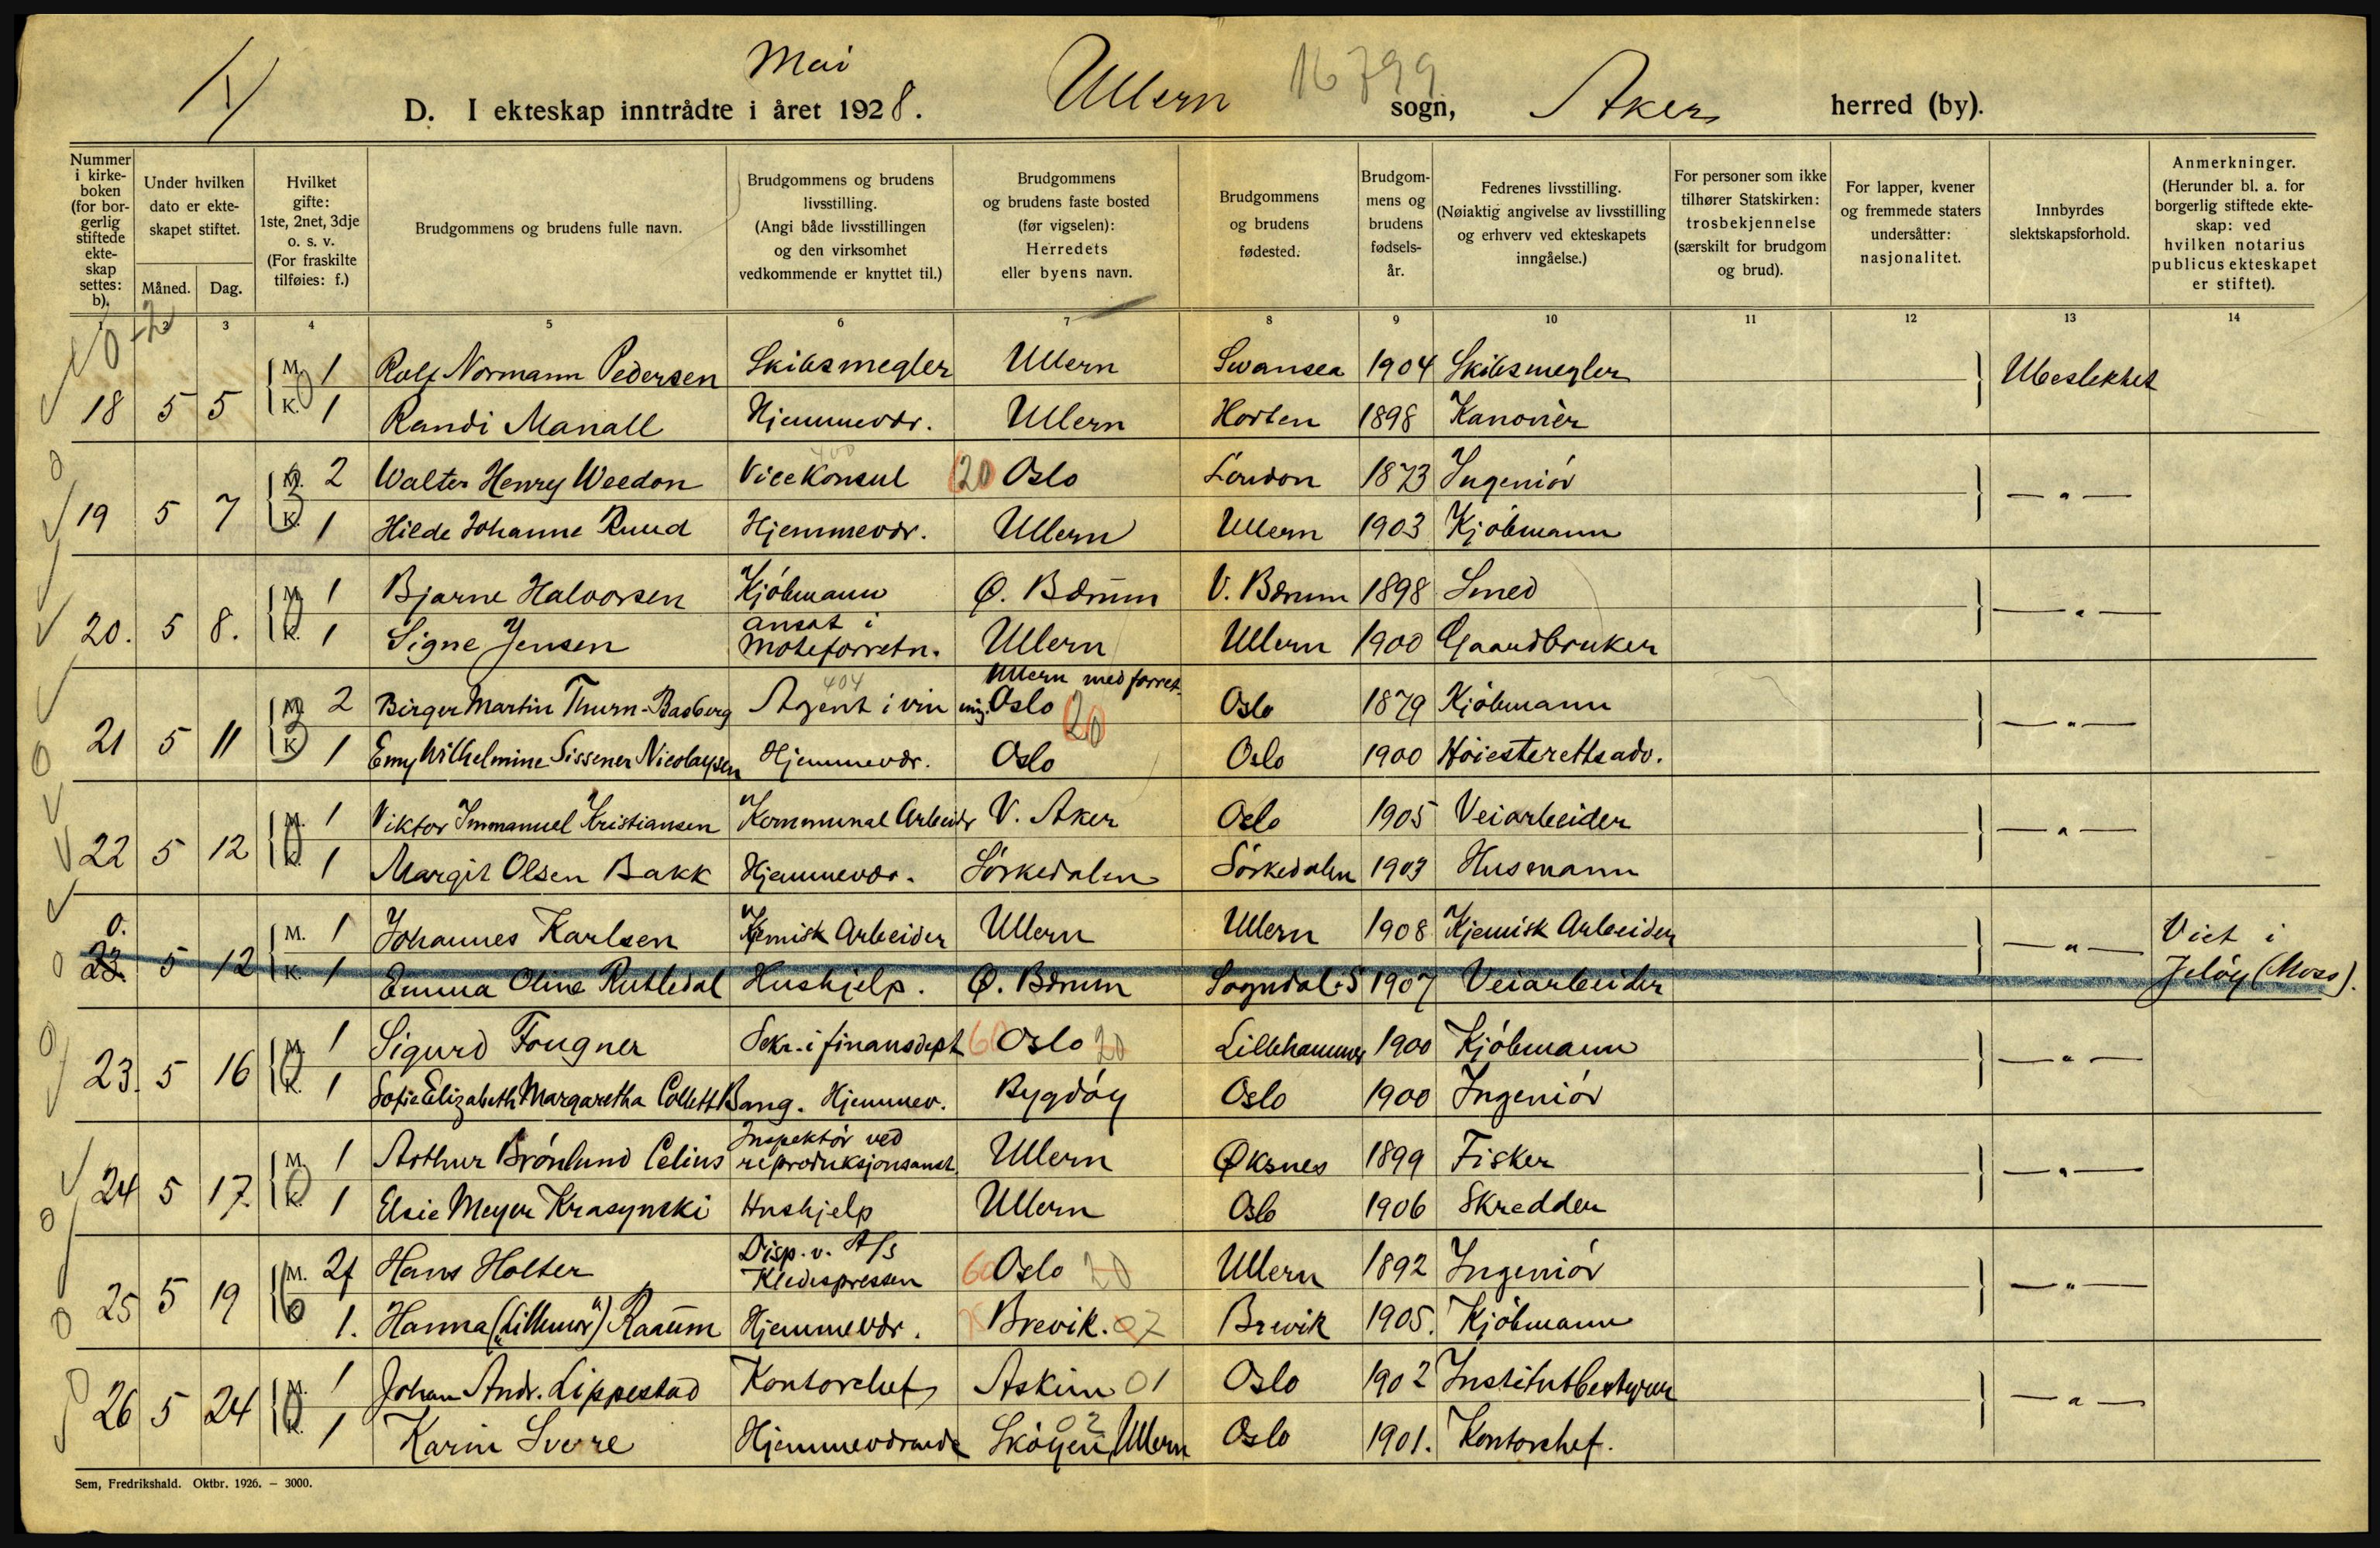 Mai
16799
D. I ekteskap inntrådte i året 1928. Ullern sogn, Aker herred (by).
Nummer i kirke-boken (for bor-gerlig stiftede ekte-skap settes: b).
Under hvilken dato er ekte-skapet stiftet.
Måned. Dag.
Hvilket gifte: 1ste, 2net, 3dje o. s. v. (For fraskilte tilføies: f.)
Brudgommens og brudens fulle navn.
Brudgommens og brudens livsstilling. (Angi både livsstillingen og den virksomhet vedkommende er knyttet til.)
Brudgommens og brudens faste bosted (før vigselen): Herredets eller byens navn.
Brudgommens og brudens fødested.
Brudgom-mens og brudens fødsels-år.
Fedrenes livsstilling. (Nøiaktig angivelse av livsstilling og erhverv ved ekteskapets inngåelse.)
For personer som ikke tilhører Statskirken: trosbekjennelse (særskilt for brudgom og brud).
For lapper, kvener og fremmede staters undersåtter: nasjonalitet.
Innbyrdes slektskapsforhold.
Anmerkninger. (Herunder bl. a. for borgerlig stiftede ekte-skap: ved hvilken notarius publicus ekteskapet er stiftet).
1 2 3 4 5 6 7 8 9 10 11 12 13 14
M. 1 Rolf Normann Pedersen Skibsmegler Ullern Swansea 1904 Skibsmegler Ubeslektet
18 5 5 K. 1 Randi Manall Hjemmevær. Ullern Horten 1898 Kanoner
M. 2 Walter Henry Weedon Vicekonsul 20 Oslo London 1873 Ingeniør — " —
19 5 7 K. 1 Hilde Johanne Ruud Hjemmevær. Ullern Ullern 1903 Kjøbmann
M. 1 Bjarne Halvorsen Kjøbmann Ø. Bærum V. Bærum 1898 Smed — " —
20. 5 8. K. 1 Signe Jensen ansat i Moteforretn. Ullern Ullern 1900 Gaardbruker
M. 2 Birger Martin Thurn-Basberg 404 Agent i vin Ullern med forret-ning. Oslo 20 Oslo 1879 Kjøbmann — " —
21 5 11 K. 1 Emy Wilhelmine Sissener Nicolaysen Hjemmevær. Oslo Oslo 1900 Høiesterettsadv.
M. 1 Viktor Immanuel Kristiansen Kommunal Arbeider V. Aker Oslo 1905 Veiarbeider — " —
22 5 12 K. 1 Margit Olsen Bakk Hjemmevær. Sørkedalen Sørkedalen 1903 Husmann
0. M. 1 Johannes Karlsen Kjemisk Arbeider Ullern Ullern 1908 Kjemisk Arbeider — " — Viet i
23. 5 12 K. 1 Emma Oline Rutledal Hushjelp. Ø. Bærum Sogndal.S 1907 Veiarbeider Jeløy (Moss).
M. 1 Sigurd Fougner Sekr. i finansdept 60 Oslo 20 Lillehammer 1900 Kjøbmann — " —
23. 5 16 K. 1 Sofie Elizabeth Margaretha Collett Bang. Hjemmev. Bygdøy Oslo 1900 Ingeniør
M. 1 Arthur Brønlund Celius Inspektør ved reproduksjonsanst. Ullern Øksnes 1899 Fisker — " —
24 5 17. K. 1 Elsie Meyer Krasynski Hushjelp Ullern Oslo 1906 Skredder
M. 2f Hans Holter Disp. v. A/s Kledespressen 60 Oslo 20 Ullern 1892 Ingeniør — " —
25 5 19 K. 1. Hanna („Lillemor") Raaum Hjemmevær. Brevik. 07 Brevik 1905. Kjøbmann
M. 1 Johan Andr. Lippestad Kontorchef Askim 01 Oslo 1902 Institutbestyrer — " —
26 5 24 K. 1 Karin Sverre Hjemmeværende Skøyen, Ullern 02 Oslo 1901. Kontorchef.
Sem, Fredrikshald. Oktbr. 1926. — 3000.